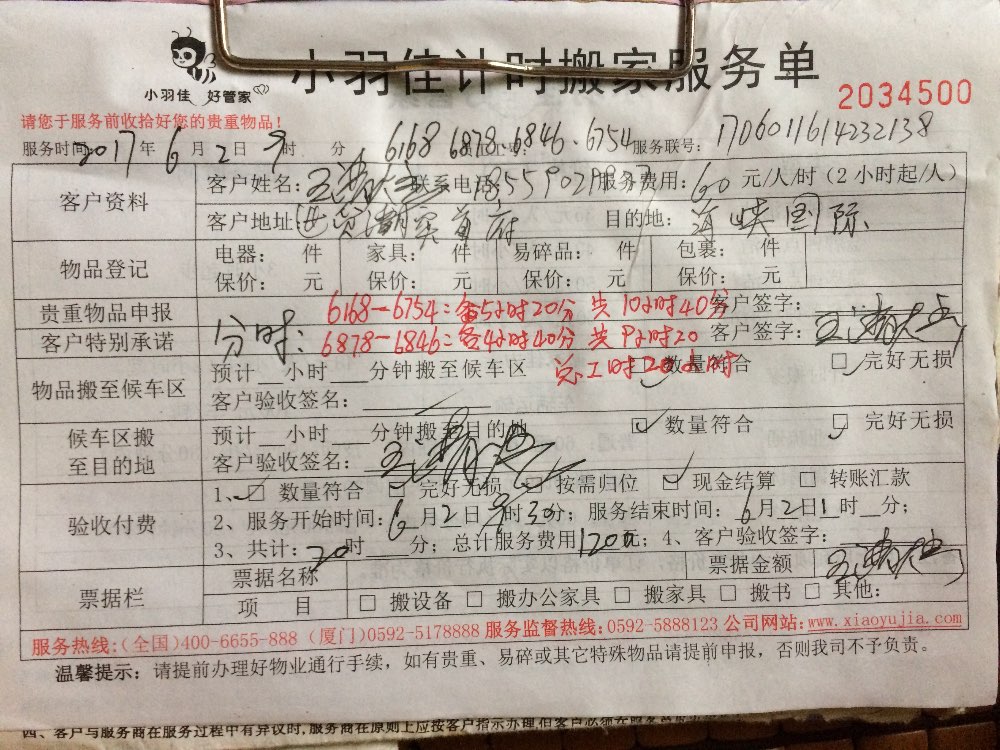 小羽佳计时搬家服务单
小羽佳 好管家
2034500
请您于服务前收拾好您的贵重物品！
服务时间：2017年6月2日9时 分 6168 6878.6846.6754 服务联号：1706011614232138
客户资料
客户姓名： 联系电话： 服务费用：60元/人/时（2小时起/人）
客户地址： 目的地：海峡国际
物品登记
电器： 件 家具： 件 易碎品： 件 包裹： 件
保价： 元 保价： 元 保价： 元 保价： 元
贵重物品申报 6168-6754：各5小时20分 共10小时40分 客户签字：
客户特别承诺 分时：6878-6846：各4小时40分 共9小时20 客户签字：
总工时20小时
物品搬至候车区
预计__小时___分钟搬至候车区 □数量符合 □完好无损
客户验收签名：
候车区搬至目的地
预计__小时___分钟搬至目的地 □数量符合 □完好无损
客户验收签名：
验收付费
1、□ 数量符合 □ 完好无损 □ 按需归位 □ 现金结算 □ 转账汇款
2、服务开始时间：6月2日9时30分；服务结束时间：6月2日1时__分；
3、共计：20时____分；总计服务费用1200元；4、客户验收签字：
票据栏
票据名称 票据金额
项 目 □ 搬设备 □ 搬办公家具 □ 搬家具 □ 搬书 □ 其他：
服务热线：(全国)400-6655-888 (厦门)0592-5178888 服务监督热线：0592-5888123 公司网站：www.xiaoyujia.com
温馨提示：请提前办理好物业通行手续，如有贵重、易碎或其它特殊物品请提前申报，否则我司不予负责。
四、客户与服务商在服务过程中有异议时，服务商在原则上应按客户指示办理，但客户必须在